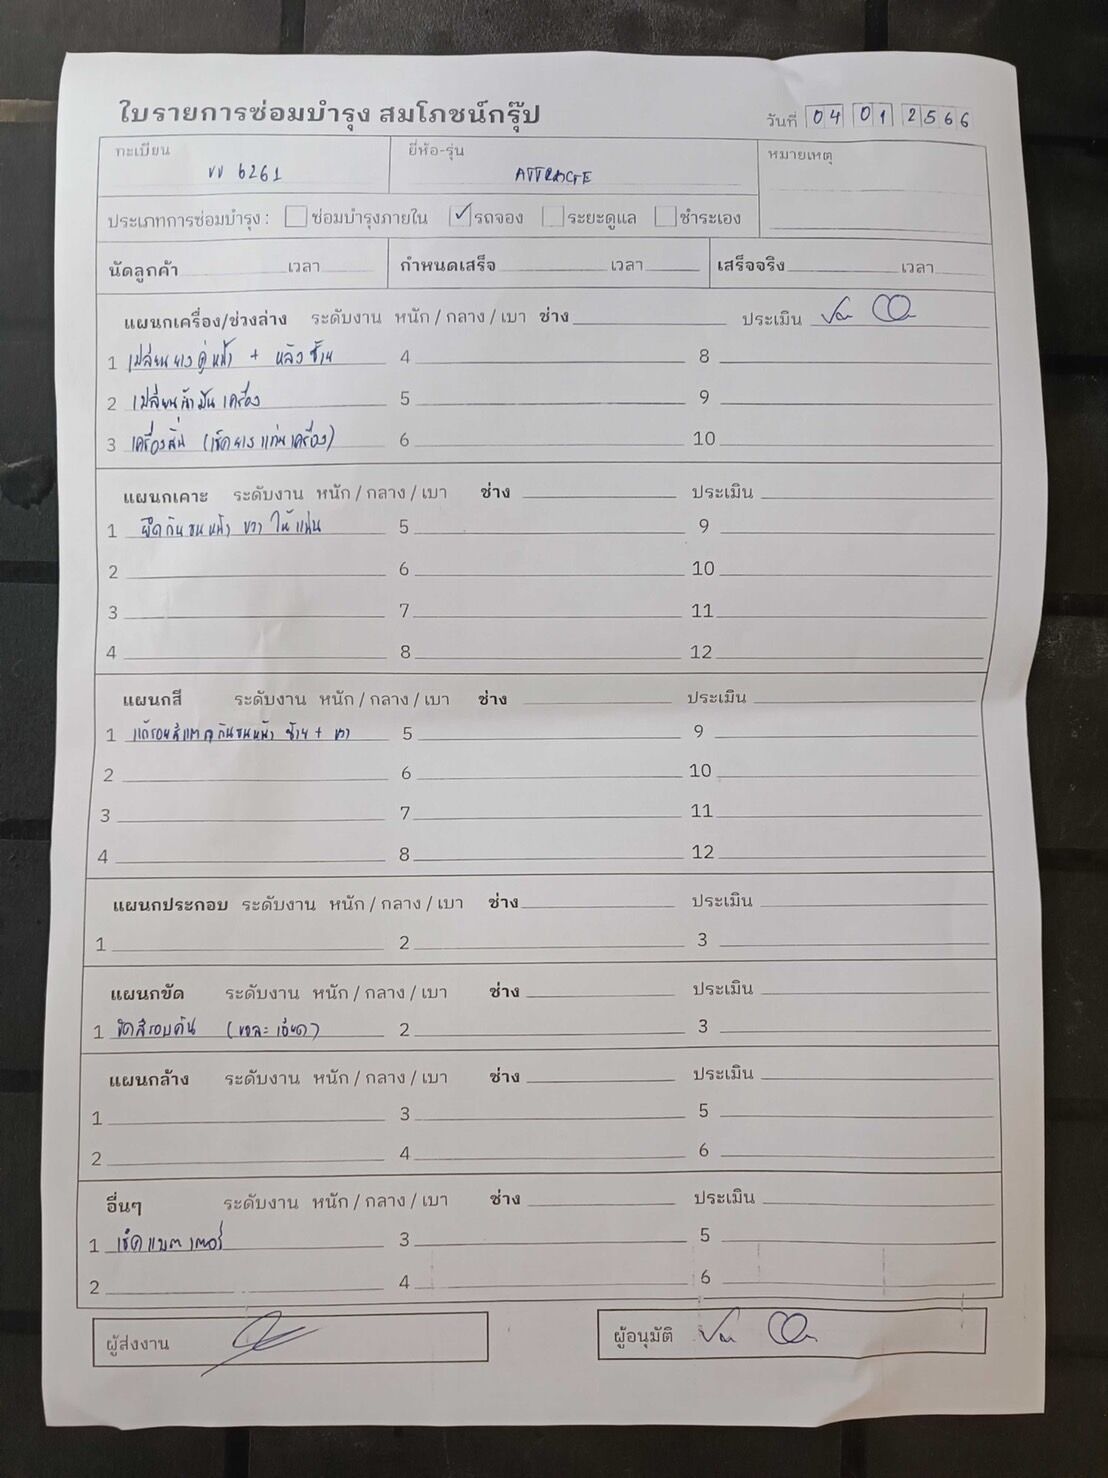 ใบรายการซ่อมบำรุง สมโภชน์กรุ๊ป
วันที่ 04 01 2566
ทะเบียน ยี่ห้อ-รุ่น หมายเหตุ
6261 ATTRAGE
ประเภทการซ่อมบำรุง : ซ่อมบำรุงภายใน ✓ รถจอง ระยะดูแล ชำระเอง
นัดลูกค้า เวลา กำหนดเสร็จ เวลา เสร็จจริง เวลา
แผนกเครื่อง/ช่วงล่าง ระดับงาน หนัก / กลาง / เบา ช่าง ประเมิน
1 เปลี่ยนยางคู่หน้า + หลังซ้าย 4 8
2 เปลี่ยนน้ำมันเครื่อง 5 9
3 เครื่องสั่น (เช็คยางแท่นเครื่อง) 6 10
แผนกเคาะ ระดับงาน หนัก / กลาง / เบา ช่าง ประเมิน
1 ยึดกันชนหน้า ขวา ให้แน่น 5 9
2 6 10
3 7 11
4 8 12
แผนกสี ระดับงาน หนัก / กลาง / เบา ช่าง ประเมิน
1 แก้รอยสีแตกกันชนหน้า ซ้าย + ขวา 5 9
2 6 10
3 7 11
4 8 12
แผนกประกอบ ระดับงาน หนัก / กลาง / เบา ช่าง ประเมิน
1 2 3
แผนกขัด ระดับงาน หนัก / กลาง / เบา ช่าง ประเมิน
1 ขัดสีรอบคัน (ขอละเอียด) 2 3
แผนกล้าง ระดับงาน หนัก / กลาง / เบา ช่าง ประเมิน
1 3 5
2 4 6
อื่นๆ ระดับงาน หนัก / กลาง / เบา ช่าง ประเมิน
1 เช็คแบตเตอรี่ 3 5
2 4 6
ผู้ส่งงาน ผู้อนุมัติ